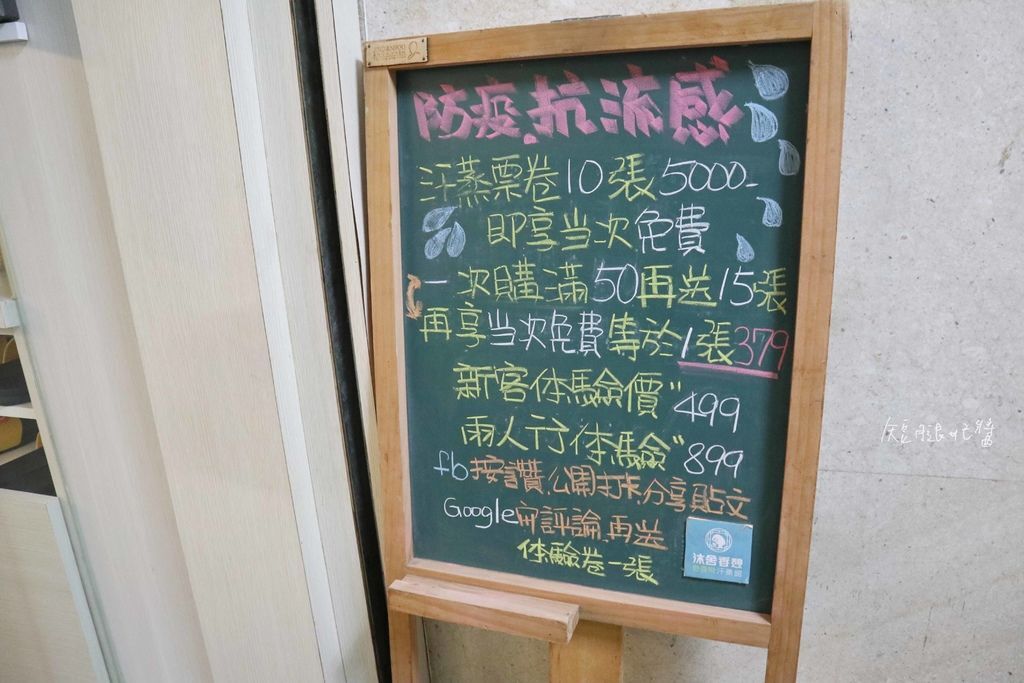 防疫.抗流感
汗蒸票卷10張5000-
即享当次免費
一次購滿50再送15張
再享当次免費等於1張379
新客体驗價"499
兩人行体驗"899
fb按讚.公開打卡.分享貼文
Google 評論再送
体驗卷一張
沐舍香憩
汗蒸館